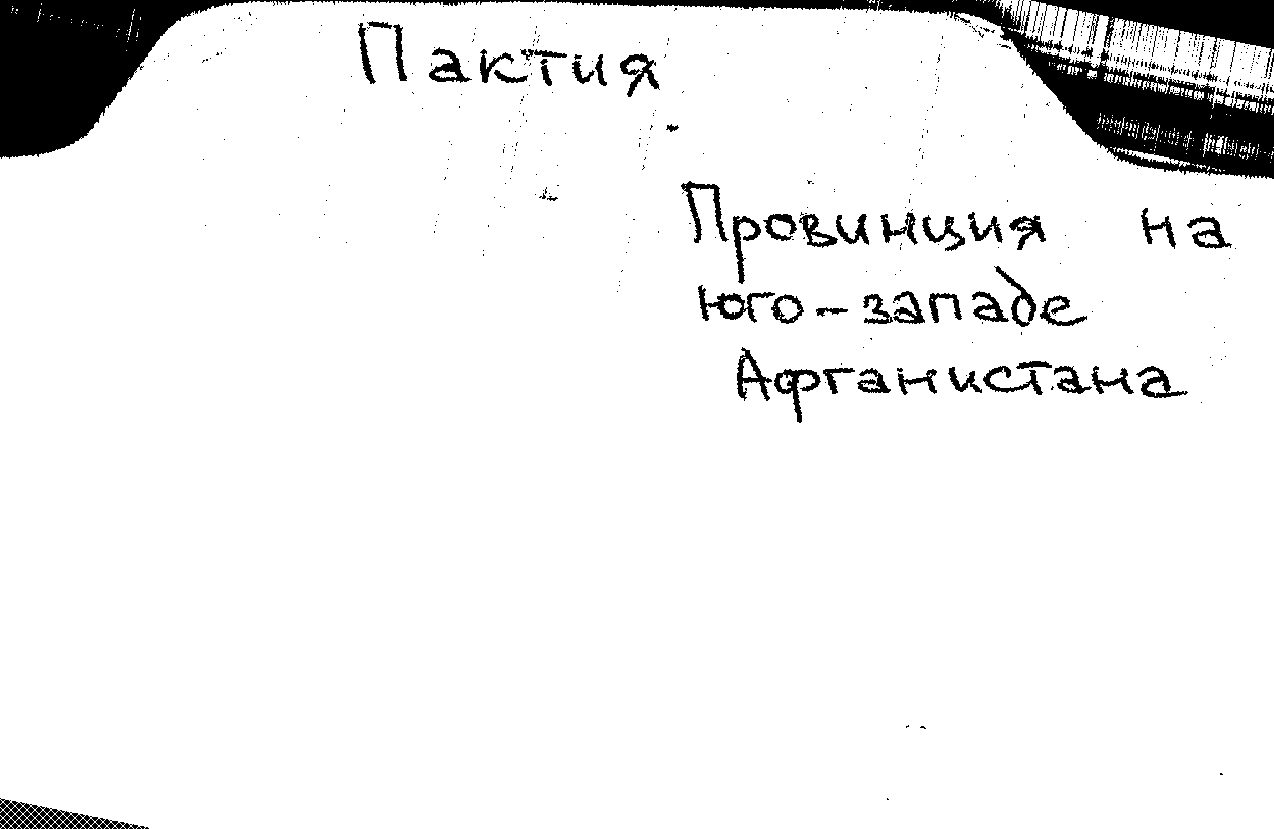 Пактия
Провинция на
юго-западе
Афганистана